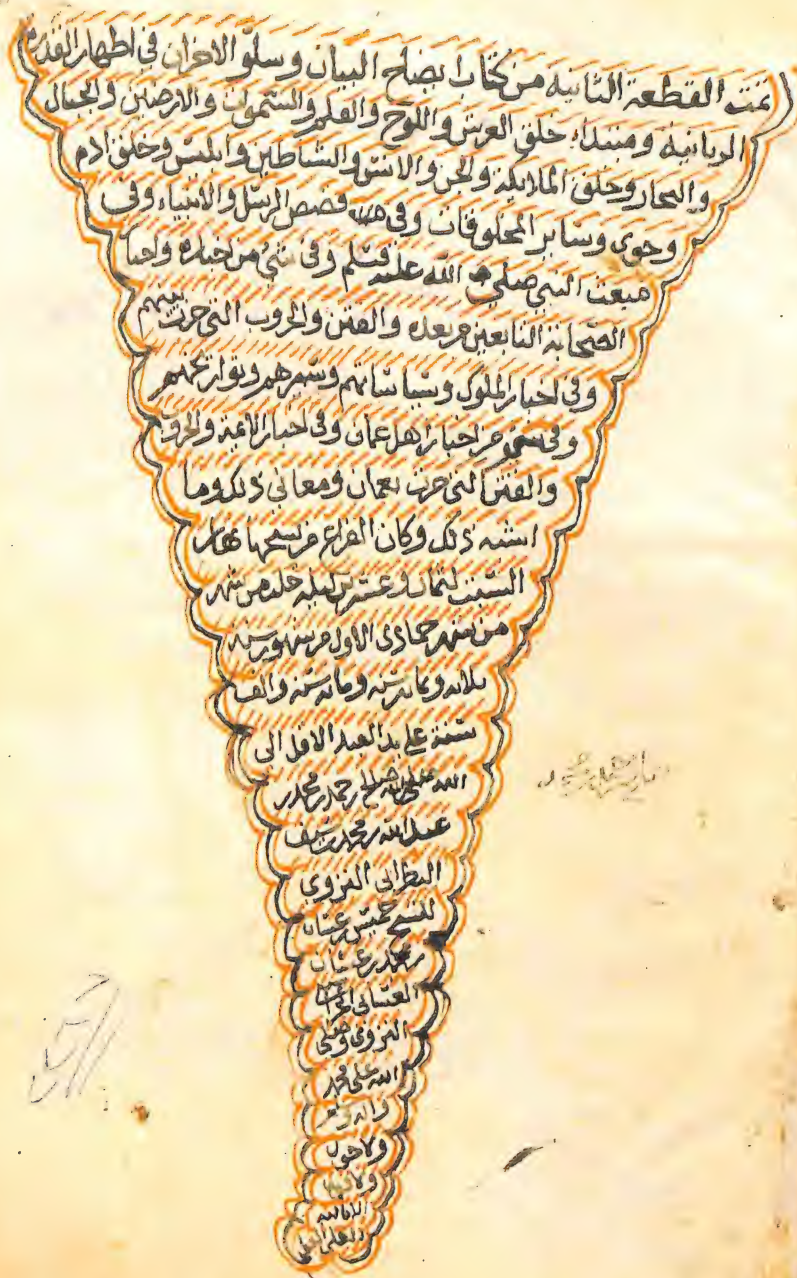 تمت القطعة الثانية من كتاب ايضاح البيان وسلو الاحزان في اظهار القدره
الربانيه ومبتداء خلق العرش واللوح والقلم والسموات والارضين والجبال
والبحار وخلق الملايكه والجن والانس والشياطين وابليس وخلق ادم
وحوى وساير المخلوقات وفي قصص الرسل والانبياء وفي
مبعث النبي صلى الله عليه وسلم وفي شي من اخباره واخبا
الصحابة التابعين من بعده والفتن والحروب التي جرت بينهم
وفي اخبار الملوك وسياساتهم وسيرهم وتواريخهم
وفي شي من اخبار اهل عمان وفي اخبار الايمة والحروب
والفتن التي جرت بعمان ومعاني ذلك وما
اشبه ذلك وكان الفراغ من نسخها نهار
السبت لثمان وعشرين ليله خلت من شهر
من شهر جمادى الاول من شهور سنه
ثلاثه وثمانين سنه ومايه سنه والف
سنة على يد العبد الاقل الى
الله بن محمد بن
عبدالله بن محمد بن سيف
النزوي
للشيخ خميس بن غسان
بن محمد بن غسان
الغساني
النزوي وصلى
الله على محمد
واله
ولا حول
ولا قوه
الا بالله
العلي العظيم